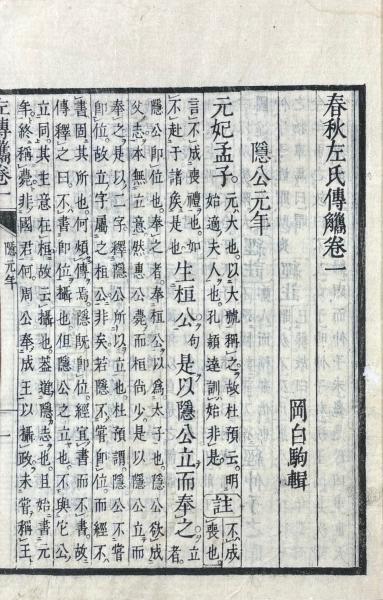 春秋左氏傳觿卷一
岡白駒輯
隱公元年
元妃孟子。元大也以大號稱之故杜預云明始適夫人也孔頴達訓始非是註不成喪也
言不成喪禮也如不赴于諸矦是也生桓公句是以隱公立而奉之立者
隱公即位也奉之者奉桓公以為太子也隱公欲成
父志本無立意然惠公薨而桓尚少是以隱公立而
奉之是以二字釋隱公所以立也杜預謂隱公不嘗
即位故立字屬之桓公非矣若隱不嘗即位而經不
書固其所也何煩傳焉隱既即位經宜書而不書故
傳釋之曰不書即位攝也但隱公之立也不與它公
立同其主意在桓故云攝也蓋遂隱志也且始書元
年終稱薨非國君何周公奉成王以攝政未嘗稱王
左傳觿卷一 隱元年 一